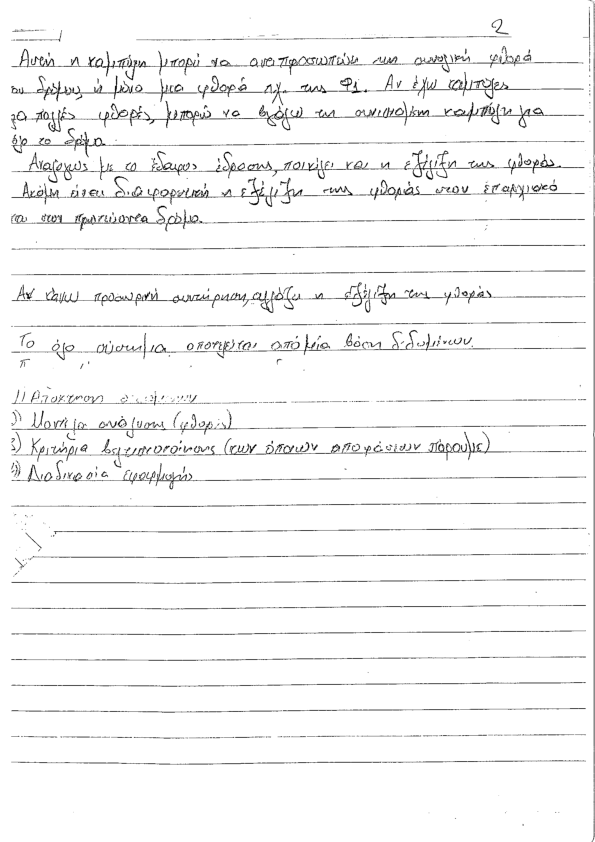 2
Αυτή η καμπύλη μπορεί να αντιπροσωπεύει την συνολική φθορά
του δρόμου, ή μόνο μια φθορά π.χ. της Φ1. Αν έχω καμπύλες
για πολλές φθορές, μπορώ να βγάλω τη συνισταμένη καμπύλη για
όλο το δρόμο.
Αναλόγως με το έδαφος έδρασης, ποικίλει και η εξέλιξη της φθοράς.
Ακόμη είναι διαφορετική η εξέλιξη της φθοράς στον επαρχιακό
και στον πρωτεύοντα δρόμο.
Αν κάνω προσωρινή συντήρηση, αλλάζει η εξέλιξη της φθοράς
Το όλο σύστημα αποτελείται από μία βάση δεδομένων.
1) Απόκτηση δεδομένων
2) Μοντέλα ανάλυσης (φθοράς)
3) Κριτήρια βελτιστοποίησης (των όποιων αποφάσεων πάρουμε)
4) Διαδικασία εφαρμογής